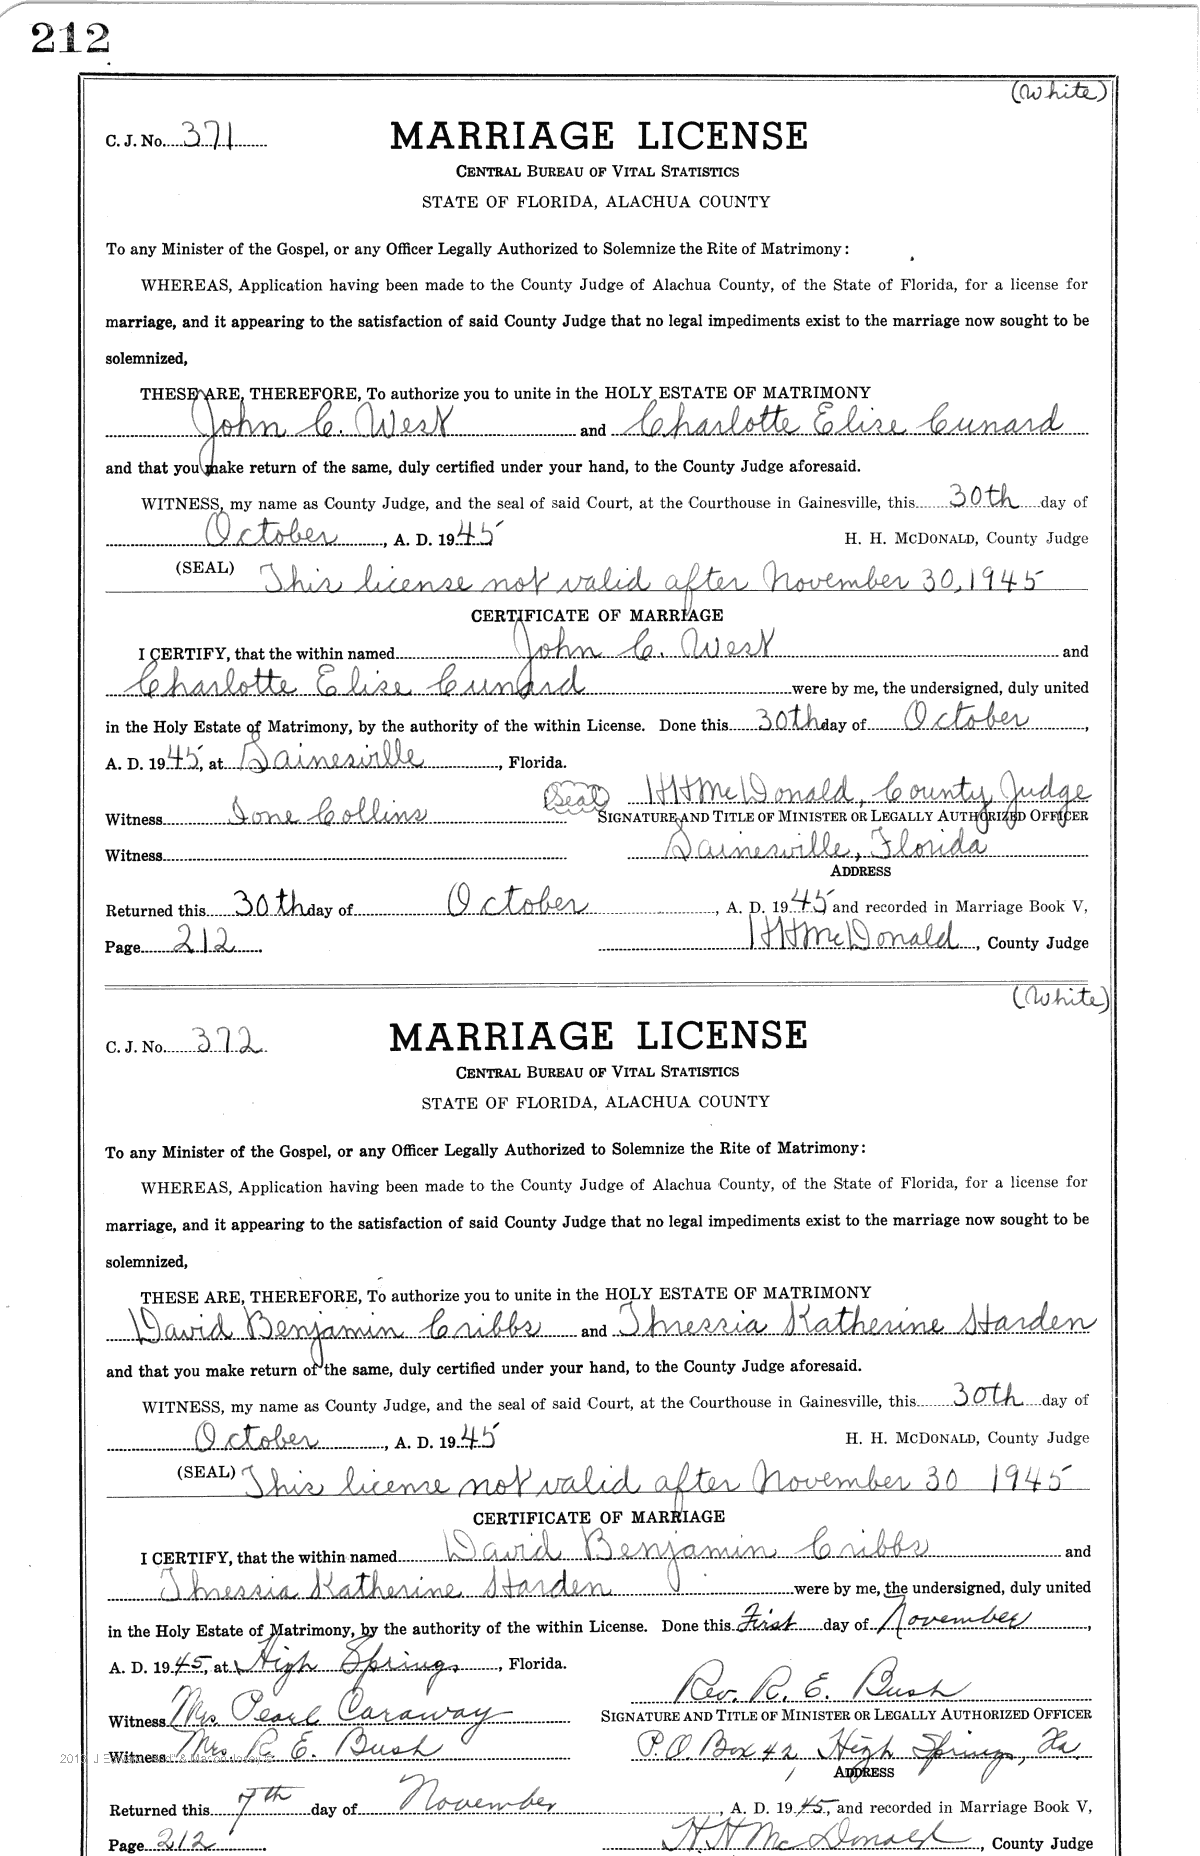 212
(White)
C. J. No. 371
MARRIAGE LICENSE
CENTRAL BUREAU OF VITAL STATISTICS
STATE OF FLORIDA, ALACHUA COUNTY
To any Minister of the Gospel, or any Officer Legally Authorized to Solemnize the Rite of Matrimony:
WHEREAS, Application having been made to the County Judge of Alachua County, of the State of Florida, for a license for
marriage, and it appearing to the satisfaction of said County Judge that no legal impediments exist to the marriage now sought to be
solemnized,
THESE ARE, THEREFORE, To authorize you to unite in the HOLY ESTATE OF MATRIMONY
John C. West and Charlotte Elise Cunard
and that you make return of the same, duly certified under your hand, to the County Judge aforesaid.
WITNESS, my name as County Judge, and the seal of said Court, at the Courthouse in Gainesville, this 30th day of
October, A. D. 1945 H. H. McDONALD, County Judge
(SEAL) This license not valid after November 30, 1945
CERTIFICATE OF MARRIAGE
I CERTIFY, that the within named John C. West and
Charlotte Elise Cunard were by me, the undersigned, duly united
in the Holy Estate of Matrimony, by the authority of the within License. Done this 30th day of October,
A. D. 1945, at Gainesville, Florida.
(Seal) HHMcDonald, County Judge
Witness Ione Collins SIGNATURE AND TITLE OF MINISTER OR LEGALLY AUTHORIZED OFFICER
Witness Gainesville, Florida
ADDRESS
Returned this 30th day of October, A. D. 1945 and recorded in Marriage Book V,
Page 212. HHMcDonald, County Judge
(White)
C. J. No. 372
MARRIAGE LICENSE
CENTRAL BUREAU OF VITAL STATISTICS
STATE OF FLORIDA, ALACHUA COUNTY
To any Minister of the Gospel, or any Officer Legally Authorized to Solemnize the Rite of Matrimony:
WHEREAS, Application having been made to the County Judge of Alachua County, of the State of Florida, for a license for
marriage, and it appearing to the satisfaction of said County Judge that no legal impediments exist to the marriage now sought to be
solemnized,
THESE ARE, THEREFORE, To authorize you to unite in the HOLY ESTATE OF MATRIMONY
David Benjamin Cribbs and Thressia Katherine Harden
and that you make return of the same, duly certified under your hand, to the County Judge aforesaid.
WITNESS, my name as County Judge, and the seal of said Court, at the Courthouse in Gainesville, this 30th day of
October, A. D. 1945 H. H. McDONALD, County Judge
(SEAL) This license not valid after November 30 1945
CERTIFICATE OF MARRIAGE
I CERTIFY, that the within named David Benjamin Cribbs and
Thressia Katherine Harden were by me, the undersigned, duly united
in the Holy Estate of Matrimony, by the authority of the within License. Done this First day of November,
A. D. 1945, at High Springs, Florida.
Rev. R. E. Bush
Witness Mrs. Pearl Caraway SIGNATURE AND TITLE OF MINISTER OR LEGALLY AUTHORIZED OFFICER
Witness Mrs R. E. Bush P.O. Box 42, High Springs, Fla.
ADDRESS
Returned this 7th day of November, A. D. 1945, and recorded in Marriage Book V,
Page 212. H H McDonald, County Judge